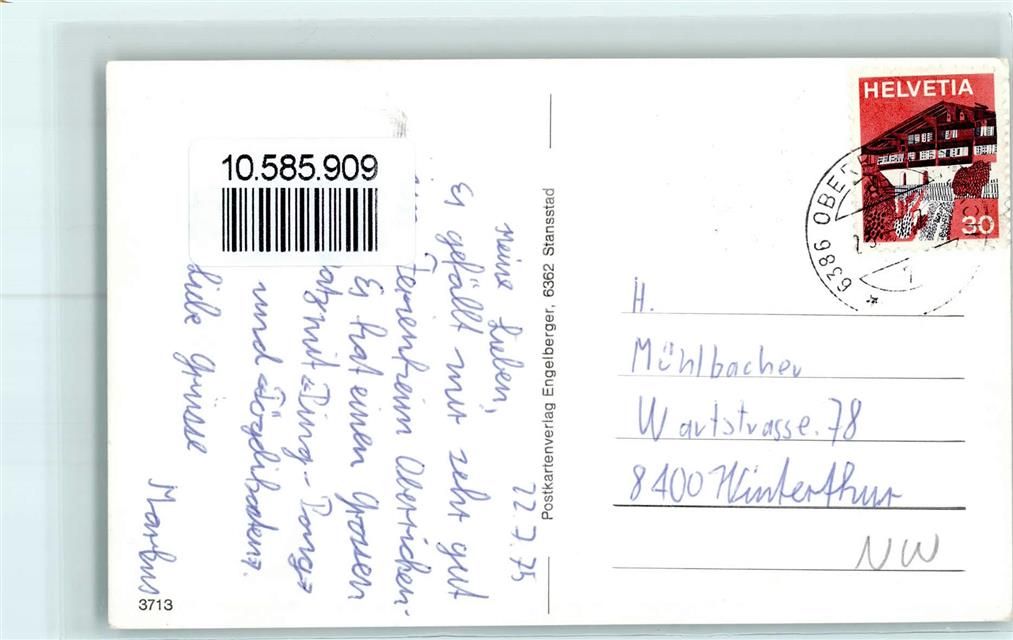 10.585.909
HELVETIA
30
6386 OBER
22.7.75
Meine Lieben,
Es gefällt mir sehr gut
Ferienheim Oberricken-
Es hat einen Grossen
mit Ping-Pong
und
Liebe Grüsse
Markus
3713
Postkartenverlag Engelberger, 6362 Stansstad
H.
Mühlbacher
Wartstrasse.78
8400 Winterthur
NW